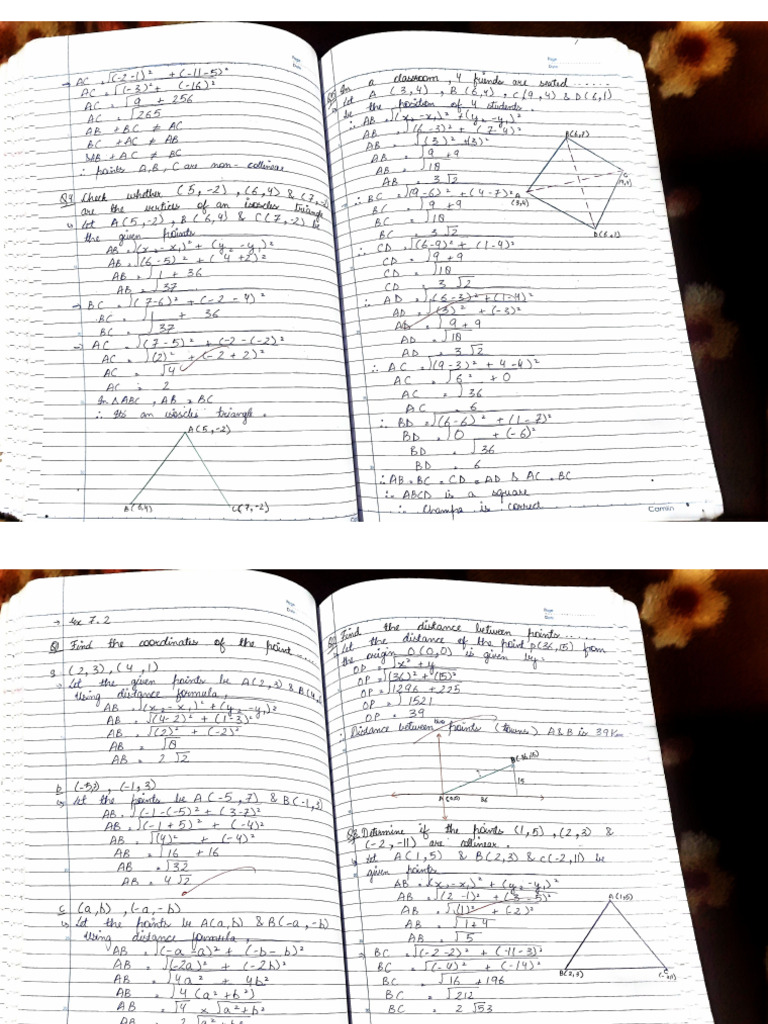 → AC = √(-2-1)² + (-11-5)²
AC = √(-3)² + (-16)²
AC = √9 + 256
AC = √265
AB + BC ≠ AC
BC + AC ≠ AB
AB + AC ≠ BC
∴ points A, B, C are non-collinear
Q4 Check whether (5,-2), (6,4) & (7,-2)
are the vertices of an isosceles triangle
Let A(5,-2), B(6,4) & C(7,-2) be
the given points
AB = √(x₂-x₁)² + (y₂-y₁)²
AB = √(6-5)² + (4+2)²
AB = √1 + 36
AB = √37
→ BC = √(7-6)² + (-2-4)²
BC = √1 + 36
BC = √37
→ AC = √(7-5)² + (-2-(-2)²
AC = √(2)² + (-2+2)²
AC = √4
AC = 2
In △ABC, AB = BC
∴ Its an isosceles triangle.
A(5,-2)
B(6,4) C(7,-2)
Page
Date
Q5 In a classroom, 4 friends are seated.......
Let A (3,4), B(6,4), C(9,4) & D(6,1)
be the position of 4 students
∴ AB = √(x₂-x₁)² + (y₂-y₁)²
AB = √(6-3)² + (7-4)²
AB = √(3)² + (3)²
AB = √9 + 9
AB = √18
AB = 3√2
→ ∴ BC = √(9-6)² + (4-7)²
BC = √9 + 9
BC = √18
BC = 3√2
∴ CD = √(6-9)² + (1-4)²
CD = √9 + 9
CD = √18
CD = 3√2
∴ AD = √(6-3)² + (1-4)²
AD = √(3)² + (-3)²
AD = √9 + 9
AD = √18
AD = 3√2
∴ AC = √(9-3)² + 4-4)²
AC = √6² + 0
AC = √36
AC = 6
∴ BD = √(6-6)² + (1-7)²
BD = √0 + (-6)²
BD = √36
BD = 6
∴ AB = BC = CD = AD & AC = BC
∴ ABCD is a square
∴ Champa is correct
B(6,1)
C
(3,4)
D(6,1)
Page
Date
Camlin
→ Ex 7.2
Q1 Find the coordinates of the point....
(2,3), (4,1)
Let the given points be A(2,3) & B(4,
Using distance formula,
AB = √(x₂-x₁)² + (y₂-y₁)²
AB = √(4-2)² + (1-3)²
AB = √(2)² + (-2)²
AB = √8
AB = 2√2
b (-5,7), (-1,3)
Let the points be A(-5,7) & B(-1,3)
AB = √(-1-(-5)² + (3-7)²
AB = √(-1+5)² + (-4)²
AB = √(4)² + (-4)²
AB = √16 + 16
AB = √32
AB = 4√2
c (a,b), (-a,-b)
Let the points be A(a,b) & B(-a,-b)
Using distance formula,
AB = √(-a-a)² + (-b-b)²
AB = √(-2a)² + (-2b)²
AB = √4a² + 4b²
AB = √4(a²+b²)
AB = √4 × √a²+b²
AB = 2√a²+b²
Page
Date
Q2 Find the distance between points.....
Let the distance of the point P(36,15) from
the origin O(0,0) is given by,
OP = √x² + y
OP = √(36)² + (15)²
OP = √1296 + 225
OP = √1521
OP = 39
∴ Distance between points (towns) A&B is 39Km
B(36,15)
15
A(0,0) 36
Q3 Determine if the points (1,5), (2,3) &
(-2,-11) are collinear.
Let A(1,5) & B(2,3) & C(-2,11) be
given points
AB = √(x₂-x₁)² + (y₂-y₁)²
AB = √(2-1)² + (3-5)²
AB = √(1)² + (2)²
AB = √1+4
AB = √5
→ BC = √(-2-2)² + (-11-3)²
BC = √(-4)² + (-14)²
BC = √16 + 196
BC = √212
BC = 2√53
A(1,5)
B(2,3) C
(-2,11)
Page
Date